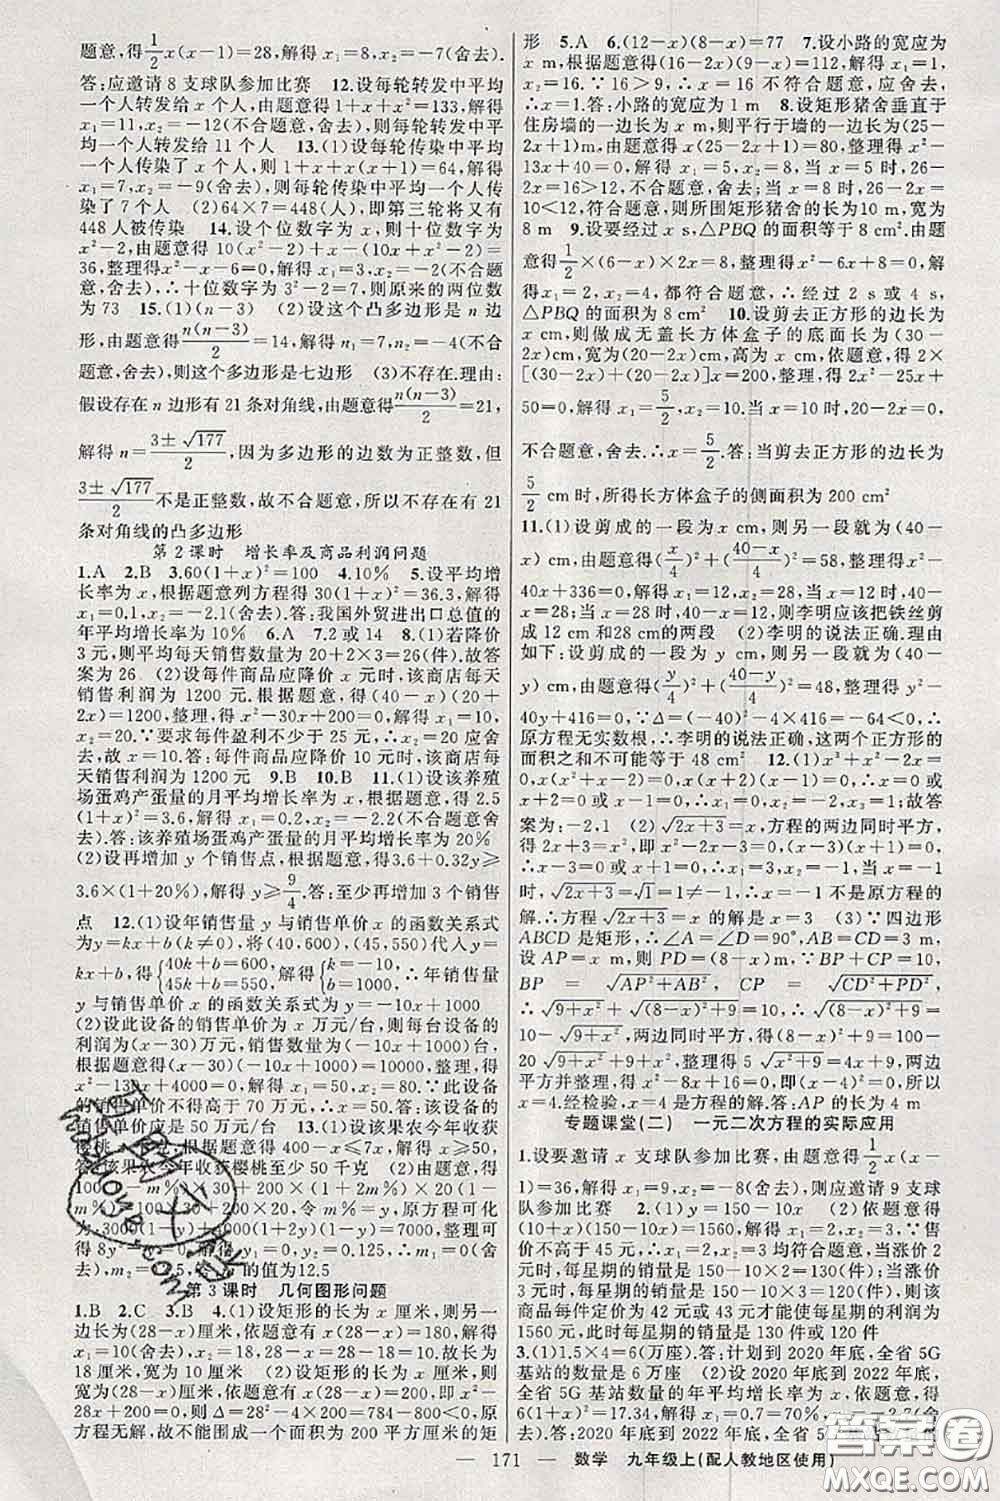 题意,得1/2x(x-1)=28,解得x₁=8,x₂=-7(舍去).
答:应邀请8支球队参加比赛 12.设每轮转发中平均
一个人转发给x个人,由题意得1+x+x²=133,解得
x₁=11,x₂=-12(不合题意,舍去),则每轮转发中平
均一个人转发给11个人 13.(1)设每轮传染中平均
一个人传染了x个人,则1+x+x(x+1)=64,解得
x₁=7,x₂=-9(舍去),则每轮传染中平均一个人传
染了7个人 (2)64×7=448(人),即第三轮将又有
448人被传染 14.设个位数字为x,则十位数字为
x²-2,由题意得10(x²-2)+x-(10x+x²-2)=
36,整理得x²-x-6=0,解得x₁=3,x₂=-2(不合
题意,舍去),∴十位数字为3²-2=7,则原来的两位数
为73 15.(1)(2)设这个凸多边形是n边
形,由题意得n(n-3)/2=14,解得n₁=7,n₂=-4(不合
题意,舍去),则这个多边形是七边形 (3)不存在.理由:
假设存在n边形有21条对角线,由题意得n(n-3)/2=21,
解得n=(3±√177)/2,因为多边形的边数为正整数,但
(3±√177)/2不是正整数,故不合题意,所以不存在有21
条对角线的凸多边形
第2课时 增长率及商品利润问题
1.A 2.B 3.60(1+x)²=100 4.10% 5.设平均增
长率为x,根据题意列方程得30(1+x)²=36.3,解得
x₁=0.1,x₂=-2.1(舍去).答:我国外贸进出口总值的
年平均增长率为10% 6.A 7.2或14 8.(1)若降价
3元,则平均每天销售数量为20+2×3=26.故答
案为26 (2)设每件商品应降价x元时,该商店每天
销售利润为1200元.根据题意,得(40-x)(20+
2x)=1200,整理,得x²-30x+200=0.解得x₁=10,
x₂=20.∵要求每件盈利不少于25元,∴x₂=20应舍
去,故x=10.答:每件商品应降价10元时,该商店每
天销售利润为1200元 9.B 10.B 11.(1)设该养殖
场蛋鸡产蛋量的月平均增长率为x,根据题意,得2.5
(1+x)²=3.6,解得x₁=0.2,x₂=-2.2(不合题意舍
去).答:该养殖场蛋鸡产蛋量的月平均增长率为20%
(2)设再增加y个销售点,根据题意,得3.6+0.32y≥
3.6×(1+20%),解得y≥9/4.答:至少再增加3个销售
点 12.(1)设年销售量y与销售单价x的函数关系式
为y=kx+b(k≠0),将(40,600),(45,550)代入y=
kx+b,得{40k+b=600,45k+b=550,解得{k=-10,b=1000,∴年销售量
y与销售单价x的函数关系式为y=-10x+1000
(2)设此设备的销售单价为x万元/台,则每台设备的
利润为(x-30)万元,销售数量为(-10x+1000)台,
根据题意得(x-30)(-10x+1000)=10000,整理得
x²-130x+4000=0,解得x₁=50,x₂=80.∵此设备
的销售单价不得高于70万元,∴x=50.答:该设备的
销售单价应是50万元/台 13.(1)设该果农今年收获
樱桃x千克,根据题意得400-x≤7x,解得x≥50.
答:该果农今年收获樱桃至少50千克 (2)由题意得
100(1-m%)×30+200×(1+2m%)×20(1-
m%)=100×30+200×20,令m%=y,原方程可化
为3000(1-y)+4000(1+2y)(1-y)=7000,整理可
得8y²-y=0,解得y₁=0,y₂=0.125,∴m₁=0(舍
去),m₂=12.5,∴m的值为12.5
第3课时 几何图形问题
1.B 2.C 3.B 4.(1)设矩形的长为x厘米,则另一
边长为(28-x)厘米,依题意有x(28-x)=180,解得
x₁=10(舍去),x₂=18,28-x=28-18=10.故长为
18厘米,宽为10厘米 (2)设矩形的长为x厘米,则
宽为(28-x)厘米,依题意有x(28-x)=200,即x²-
28x+200=0,则Δ=28²-4×200=784-800<0,原
方程无解,故不能围成一个面积为200平方厘米的矩
形 5.A 6.(12-x)(8-x)=77 7.设小路的宽应为
x m,根据题意得(16-2x)(9-x)=112,解得x₁=1,
x₂=16.∵16>9,∴x=16不符合题意,应舍去,
∴x=1.答:小路的宽应为1 m 8.设矩形猪舍垂直于
住房墙的一边长为x m,则平行于墙的一边长为(25-
2x+1)m,由题意得x(25-2x+1)=80,整理得x²-
13x+40=0,解得x₁=5,x₂=8,当x=5时,26-
2x=16>12,不符合题意,舍去;当x=8时,26-2x=
10<12,符合题意,则所围矩形猪舍的长为10 m,宽为
8 m 9.设要经过x s,△PBQ的面积等于8 cm².由题
意得1/2×(6-x)×2x=8,整理得x²-6x+8=0,解得
x₁=2,x₂=4,都符合题意,∴经过2 s或4 s,
△PBQ的面积为8 cm² 10.设剪去正方形的边长为
x cm,则做成无盖长方体盒子的底面长为(30-
2x)cm,宽为(20-2x)cm,高为x cm,依题意,得2×
[(30-2x)+(20-2x)]x=200,整理得,2x²-25x+
50=0,解得x₁=5/2,x₂=10.当x=10时,20-2x=0,
不合题意,舍去.∴x=5/2.答:当剪去正方形的边长为
5/2 cm时,所得长方体盒子的侧面积为200 cm²
11.(1)设剪成的一段为x cm,则另一段就为(40-
x)cm,由题意得(x/4)²+((40-x)/4)²=58,整理得x²-
40x+336=0,解得x₁=12,x₂=28,当x=12时,40-
x=28;当x=28时,40-x=12,则李明应该把铁丝剪
成12 cm和28 cm的两段 (2)李明的说法正确.理由
如下:设剪成的一段为y cm,则另一段就为(40-
y)cm,由题意得(y/4)²+((40-y)/4)²=48,整理得y²-
40y+416=0,∵Δ=(-40)²-4×416=-64<0,∴
原方程无实数根,∴李明的说法正确,这两个正方形的
面积之和不可能等于48 cm² 12.(1)x³+x²-2x=
0,x(x²+x-2)=0,x(x+2)(x-1)=0,∴x=0或
x+2=0或x-1=0,∴x₁=0,x₂=-2,x₃=1;故答
案为:-2,1 (2)√(2x+3)=x,方程的两边同时平方,
得2x+3=x²,即x²-2x-3=0,(x-3)(x+1)=0,
∴x-3=0或x+1=0,∴x₁=3,x₂=-1,当x=-1
时,√(2x+3)=√1=1≠-1,∴-1不是原方程的
解.∴方程√(2x+3)=x的解是x=3 (3)∵四边形
ABCD是矩形,∴∠A=∠D=90°,AB=CD=3 m,
设AP=x m,则PD=(8-x)m,∵BP+CP=10,
BP=√(AP²+AB²),CP=√(CD²+PD²),
∴√(9+x²)+√((8-x)²+9)=10,∴√((8-x)²+9)=
10-√(9+x²),两边同时平方,得(8-x)²+9=100-
20√(9+x²)+9+x²,整理得5√(x²+9)=4x+9,两边
平方并整理,得x²-8x+16=0,即(x-4)²=0,解得
x=4.经检验,x=4是方程的解.答:AP的长为4 m
专题课堂(二) 一元二次方程的实际应用
1.设要邀请x支球队参加比赛,由题意得1/2x(x-
1)=36,解得x₁=9,x₂=-8(舍去),则应邀请9支球
队参加比赛 2.(1)y=150-10x (2)依题意得
(10+x)(150-10x)=1560,解得x₁=2,x₂=3,∵售
价不高于45元,∴x₁=2,x₂=3均符合题意,当涨价2
元时,每星期的销量是150-10×2=130(件);当涨价
3元时,每星期的销量是150-10×3=120(件),则该
商品每件定价为42元或43元才能使每星期的利润为
1560元,此时每星期的销量是130件或120件
3.(1)1.5×4=6(万座).答:计划到2020年底,全省5G
基站的数量是6万座 (2)设2020年底到2022年底,
全省5G基站数量的年平均增长率为x,依题意,得
6(1+x)²=17.34,解得x₁=0.7=70%,
去).答:2020年底到2022年底,全省5
— 171 — 数学 九年级上(配人教地区使用)
答案圈
MXQE.COM